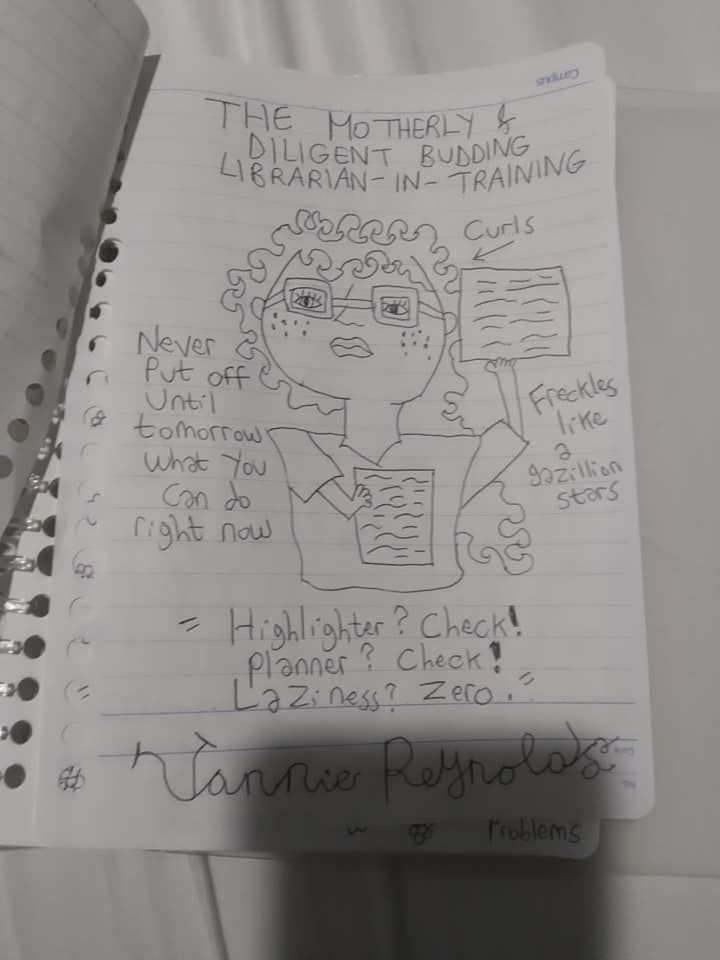 Campus
THE MOTHERLY &
DILIGENT BUDDING
LIBRARIAN-IN-TRAINING
Curls
Never
Put off
Until
tomorrow
What You
Can do
right now
Freckles
like
a
gazillion
stars
= Highlighter? Check!
Planner? Check!
Laziness? Zero. =
Vannie Reynolds
Problems